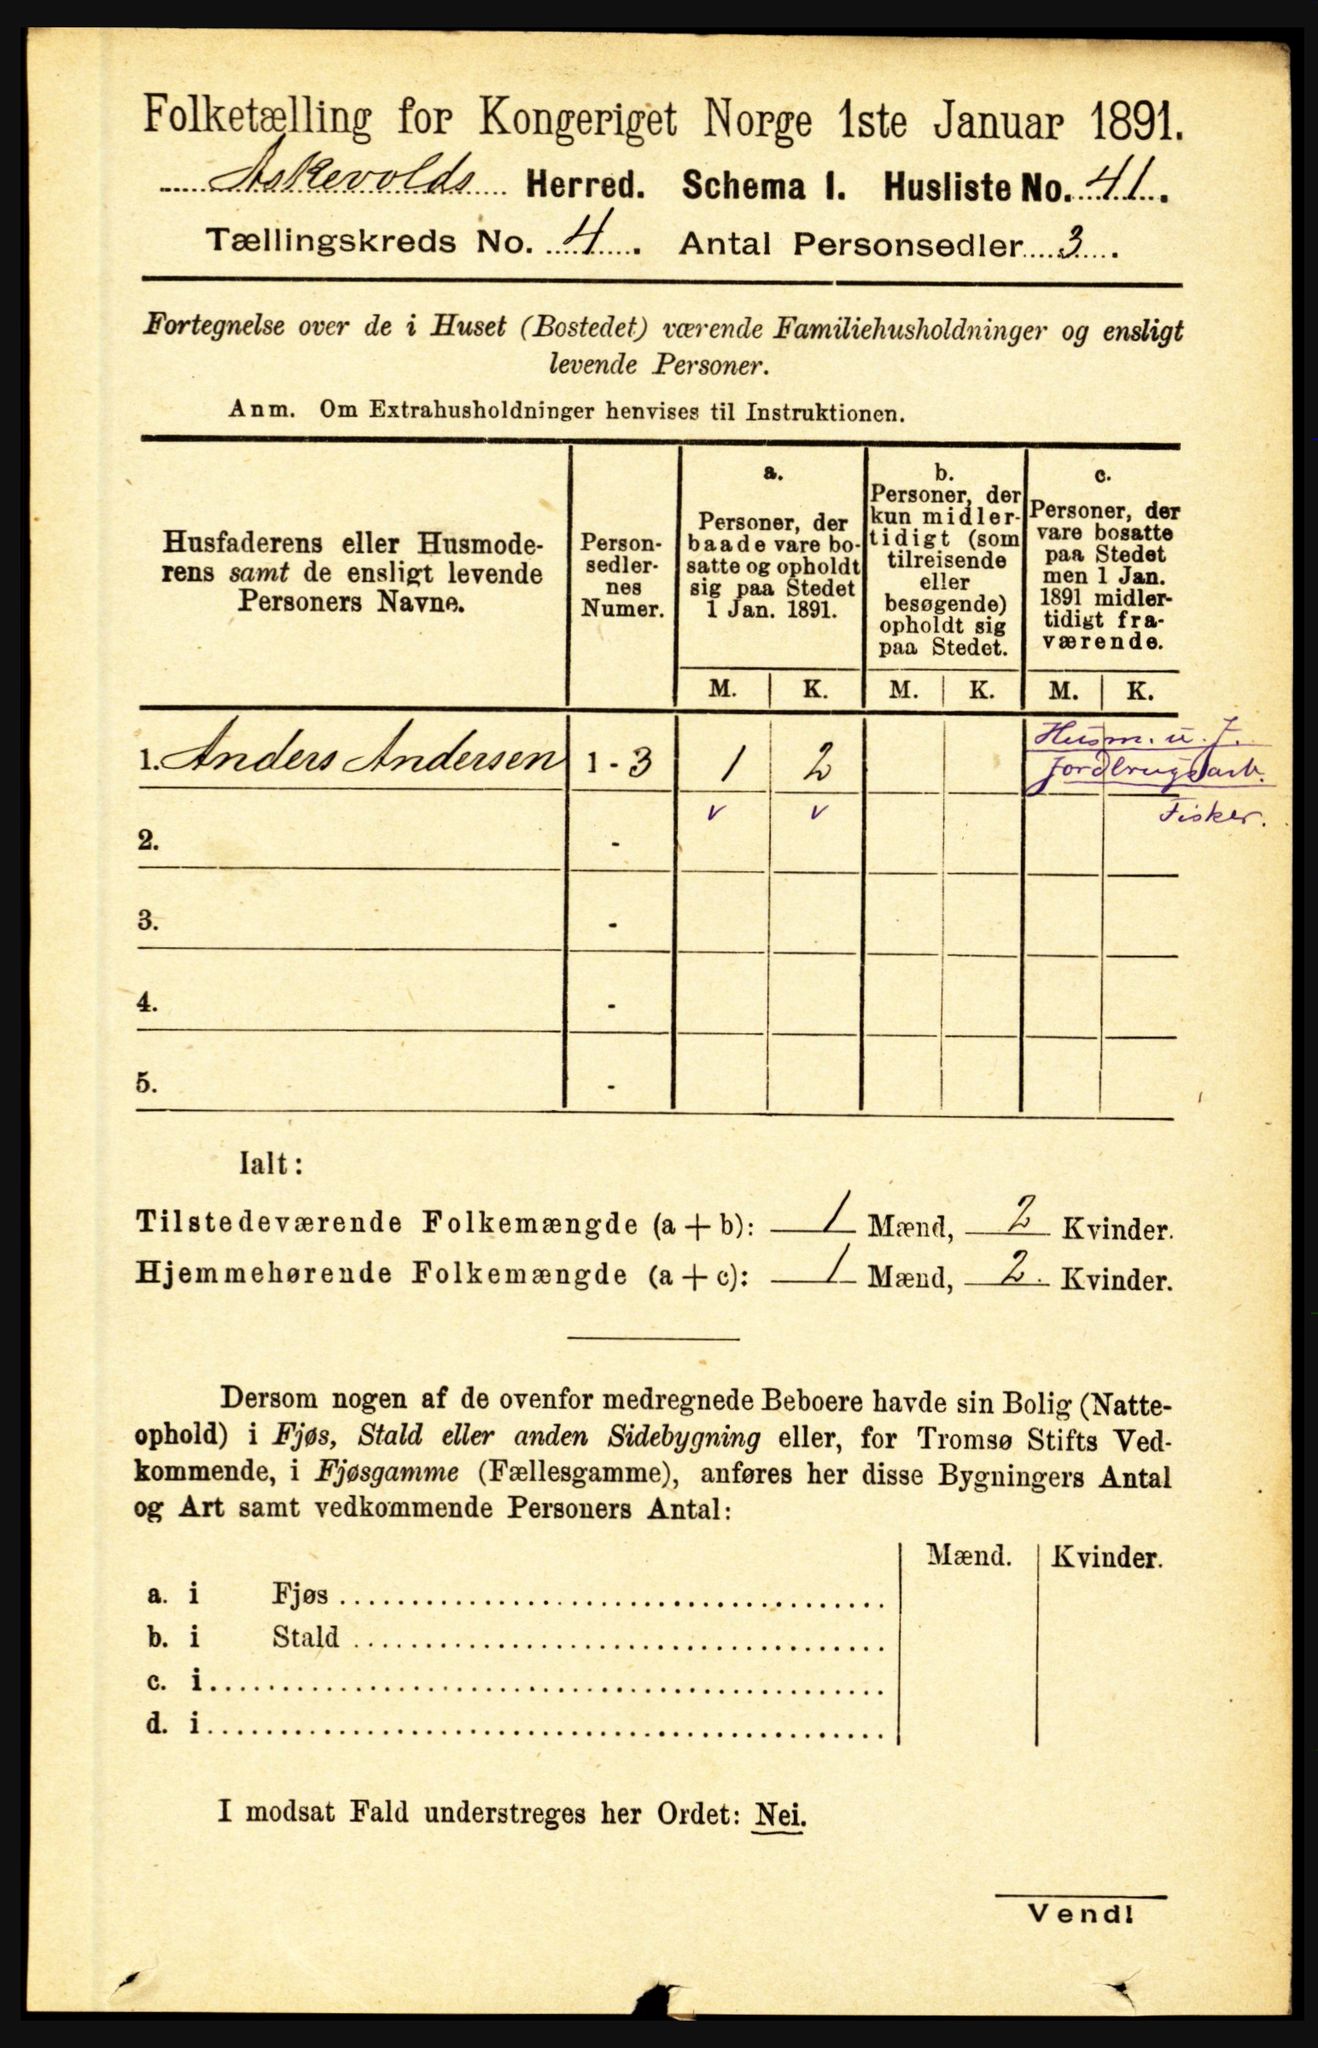 Folketælling for Kongeriget Norge 1ste Januar 1891.
Askevolds Herred. Schema I. Husliste No. 41.
Tællingskreds No. 4. Antal Personsedler 3.
Fortegnelse over de i Huset (Bostedet) værende Familiehusholdninger og ensligt
levende Personer.
Anm. Om Extrahusholdninger henvises til Instruktionen.
Husfaderens eller Husmode-
rens samt de ensligt levende
Personers Navne.
Person-
sedler-
nes
Numer.
a.
Personer, der
baade vare bo-
satte og opholdt
sig paa Stedet
1 Jan. 1891.
b.
Personer, der
kun midler-
tidigt (som
tilreisende
eller
besøgende)
opholdt sig
paa Stedet.
c.
Personer, der
vare bosatte
paa Stedet
men 1 Jan.
1891 midler-
tidigt fra-
værende.
M. K. M. K. M. K.
Husm. u. J.
1. Anders Andersen 1 - 3 1 2 Jordbrugsarb.
v v Fisker.
2. -
3. -
4. -
5. -
Ialt:
Tilstedeværende Folkemængde (a + b): 1 Mænd, 2 Kvinder.
Hjemmehørende Folkemængde (a + c): 1 Mænd, 2. Kvinder.
Dersom nogen af de ovenfor medregnede Beboere havde sin Bolig (Natte-
ophold) i Fjøs, Stald eller anden Sidebygning eller, for Tromsø Stifts Ved-
kommende, i Fjøsgamme (Fællesgamme), anføres her disse Bygningers Antal
og Art samt vedkommende Personers Antal:
Mænd. Kvinder.
a. i Fjøs
b. i Stald
c. i
d. i
I modsat Fald understreges her Ordet: Nei.
Vend!